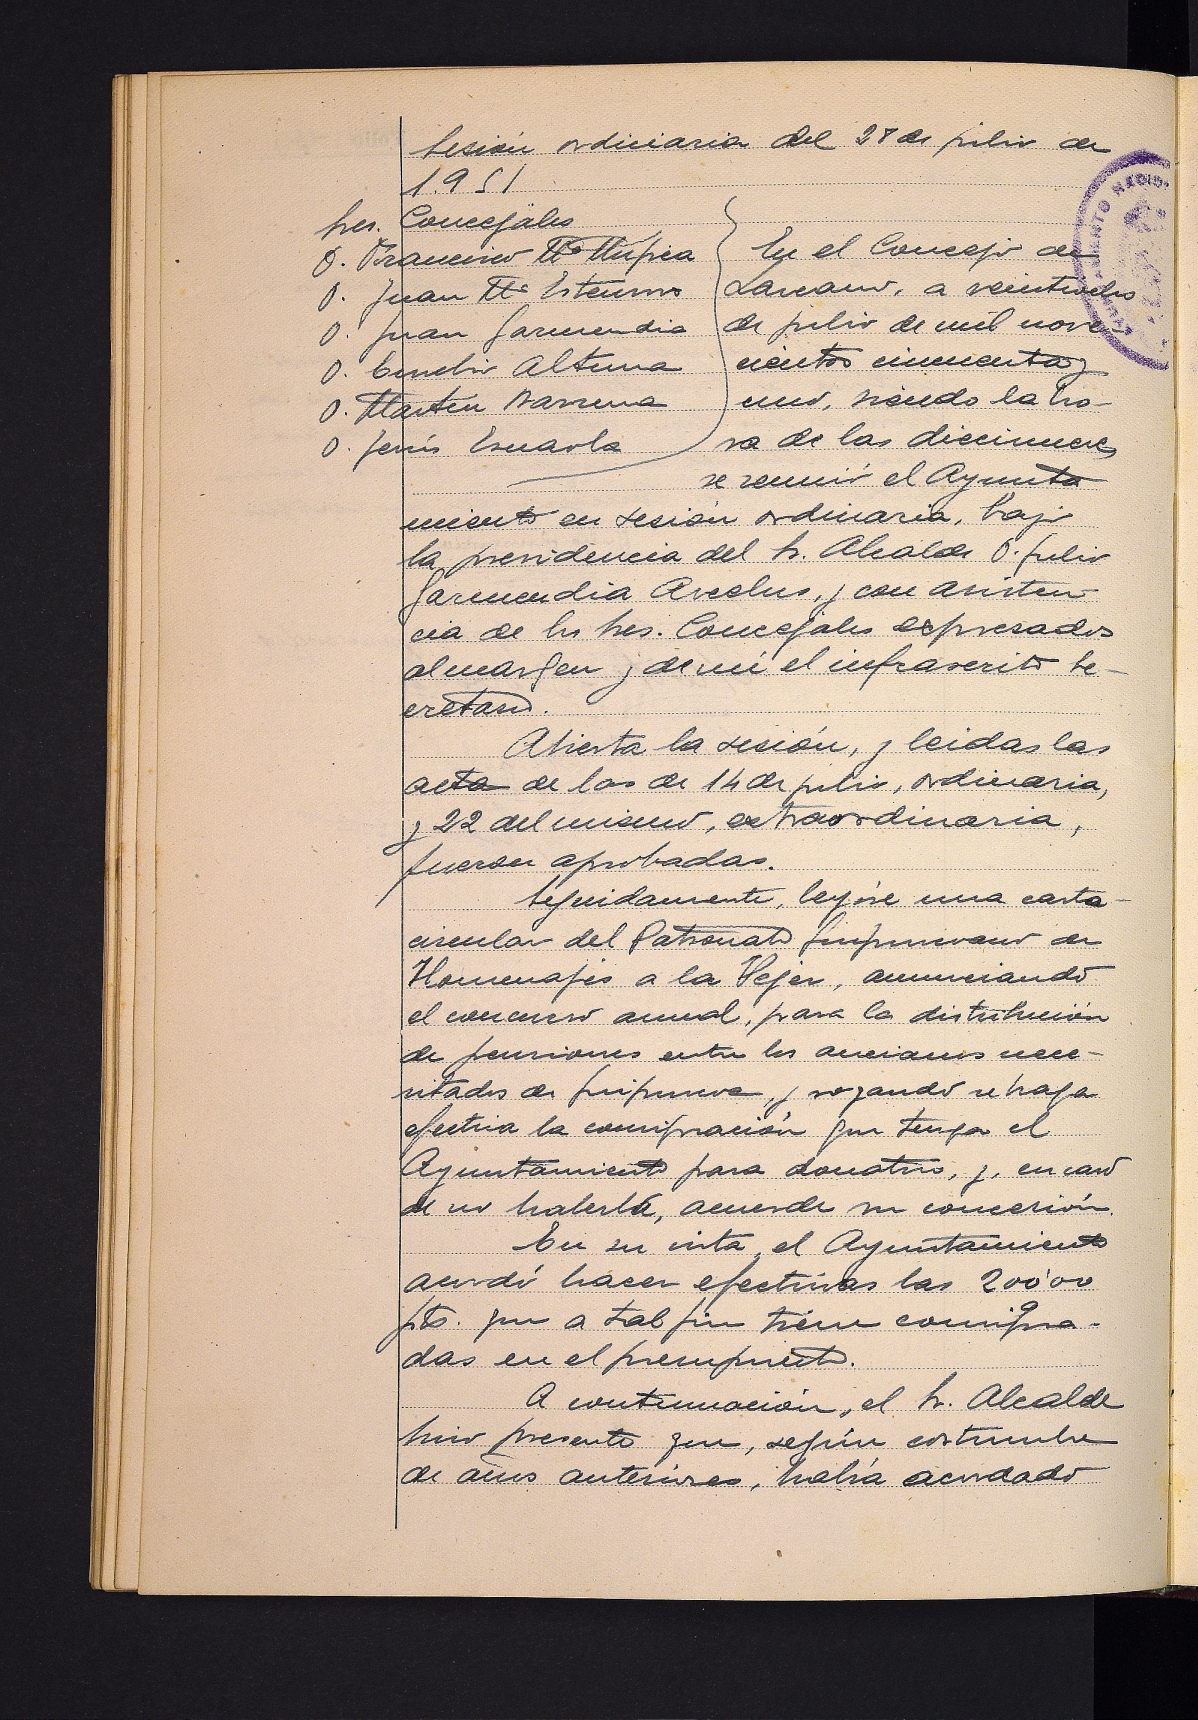 Sesión ordinaria del 28 de julio de
1951
Sres. Concejales
D. Francisco Mª Múgica
D. Juan Mª Estensoro
D. Juan Garmendia
D. Eusebio Altuna
D. Martín Barrena
D. Jesús Esnaola
En el Concejo de
Lazcano, a veintiocho
de julio de mil nove
cientos cincuenta y
uno, siendo la ho-
ra de las diecinueve,
se reunió el Ayunta
miento en sesión ordinaria, bajo
la presidencia del Sr. Alcalde D. Julio
Garmendia Arcelus, y con asisten
cia de los Sres. Concejales expresados
al margen y de mí el infrascrito Se-
cretario.
Abierta la sesión, y leidas las
acta de las de 14 de julio, ordinaria,
y 22 del mismo, extraordinaria,
fueron aprobadas.
Seguidamente, leyóse una carta-
circular del Patronato Guipuzcoano de
Homenajes a la Vejez, anunciando
el concurso anual, para la distribución
de pensiones entre los ancianos nece-
sitados de Guipúzcoa, y rogando se haga
efectiva la consignación que tenga el
Ayuntamiento para donativo, y, en caso
de no haberla, acuerde su concesión.
En su vista, el Ayuntamiento
acordó hacer efectivas las 200'00
pts. que a tal fin tiene consigna-
das en el presupuesto.
A continuación, el Sr. Alcalde
hizo presente que, según costumbre
de años anteriores, había acordado